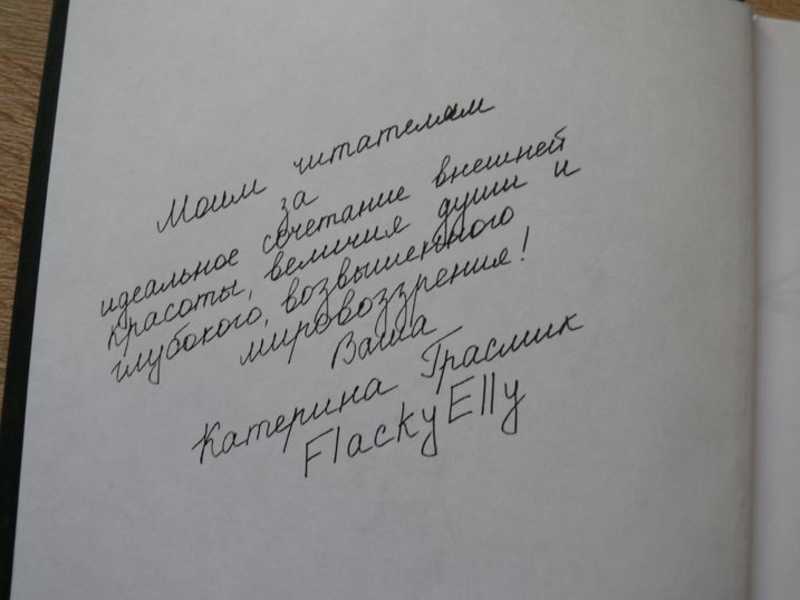 Моим читателям
за
идеальное сочетание внешней
красоты, величия души и
глубокого, возвышенного
мировоззрения!
Ваша
Катерина Грасмик
FlackyElly